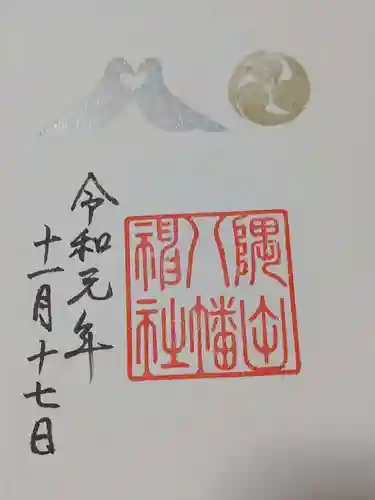 隅田
八幡
神社
令和元年
十一月十七日